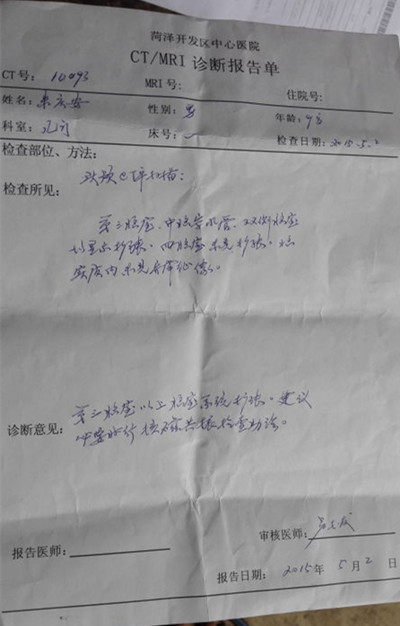 菏泽开发区中心医院
CT/MRI 诊断报告单
CT号: 10493 MRI号: 住院号:
姓名: 性别: 男 年龄:
科室: 床号: 检查日期: 2015.5.2
检查部位、方法:
检查所见: 头颅CT平扫描:
第三脑室、中脑导水管、双侧脑室
明显扩张。四脑室未见扩张。脑
实质内未见异常征像。
第三脑室以上脑室系统扩张。建议
诊断意见: 必要时行核磁共振检查助诊。
审核医师:
报告医师:
报告日期: 2015年 5月 2 日